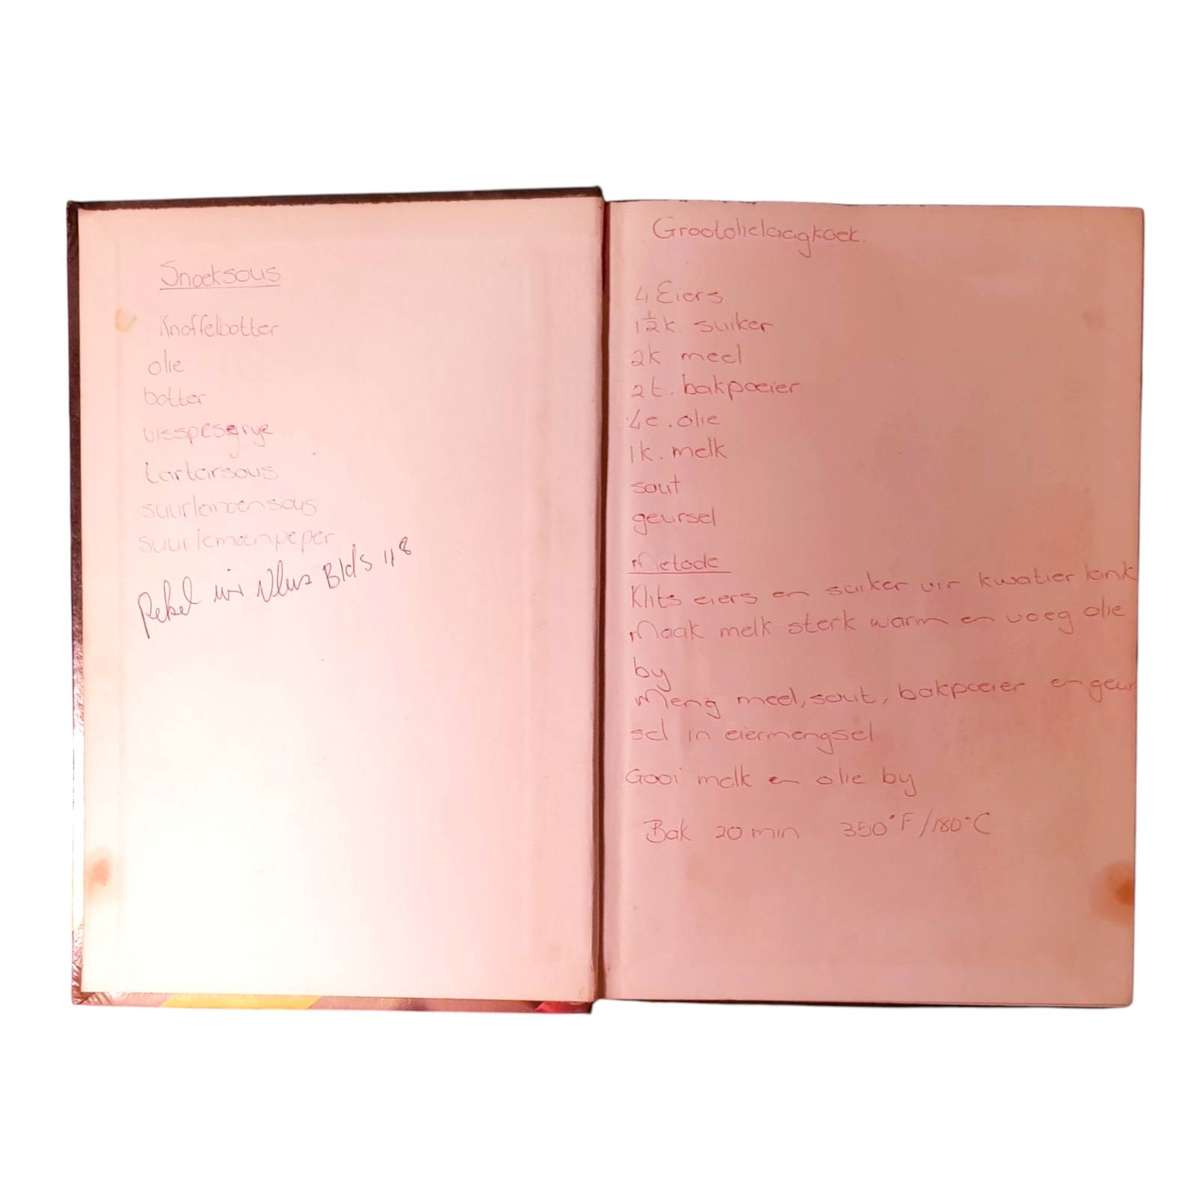 Snoeksous
Knoffelbotter
olie
botter
visspeserye
tartarsous
suurlemoensous
suurlemoenpeper
Pekel vir Vleis Blds 118
Grootolielaagkoek.
4 Eiers
1½k. suiker
2k meel
2t. bakpoeier
4e. olie
1k. melk
sout
geursel
Metode
Klits eiers en suiker vir kwatier lank
Maak melk sterk warm en voeg olie
by
Meng meel, sout, bakpoeier en geur
sel in eiermengsel
Gooi melk en olie by
Bak 20 min 350°F/180°C